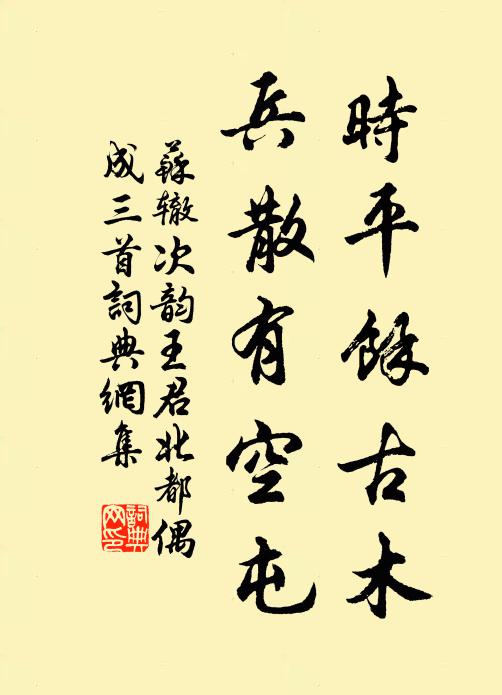 時平餘古木
兵散有空屯
蘇辙次韵王君北都偶
成三首詞典網集
詞典网印